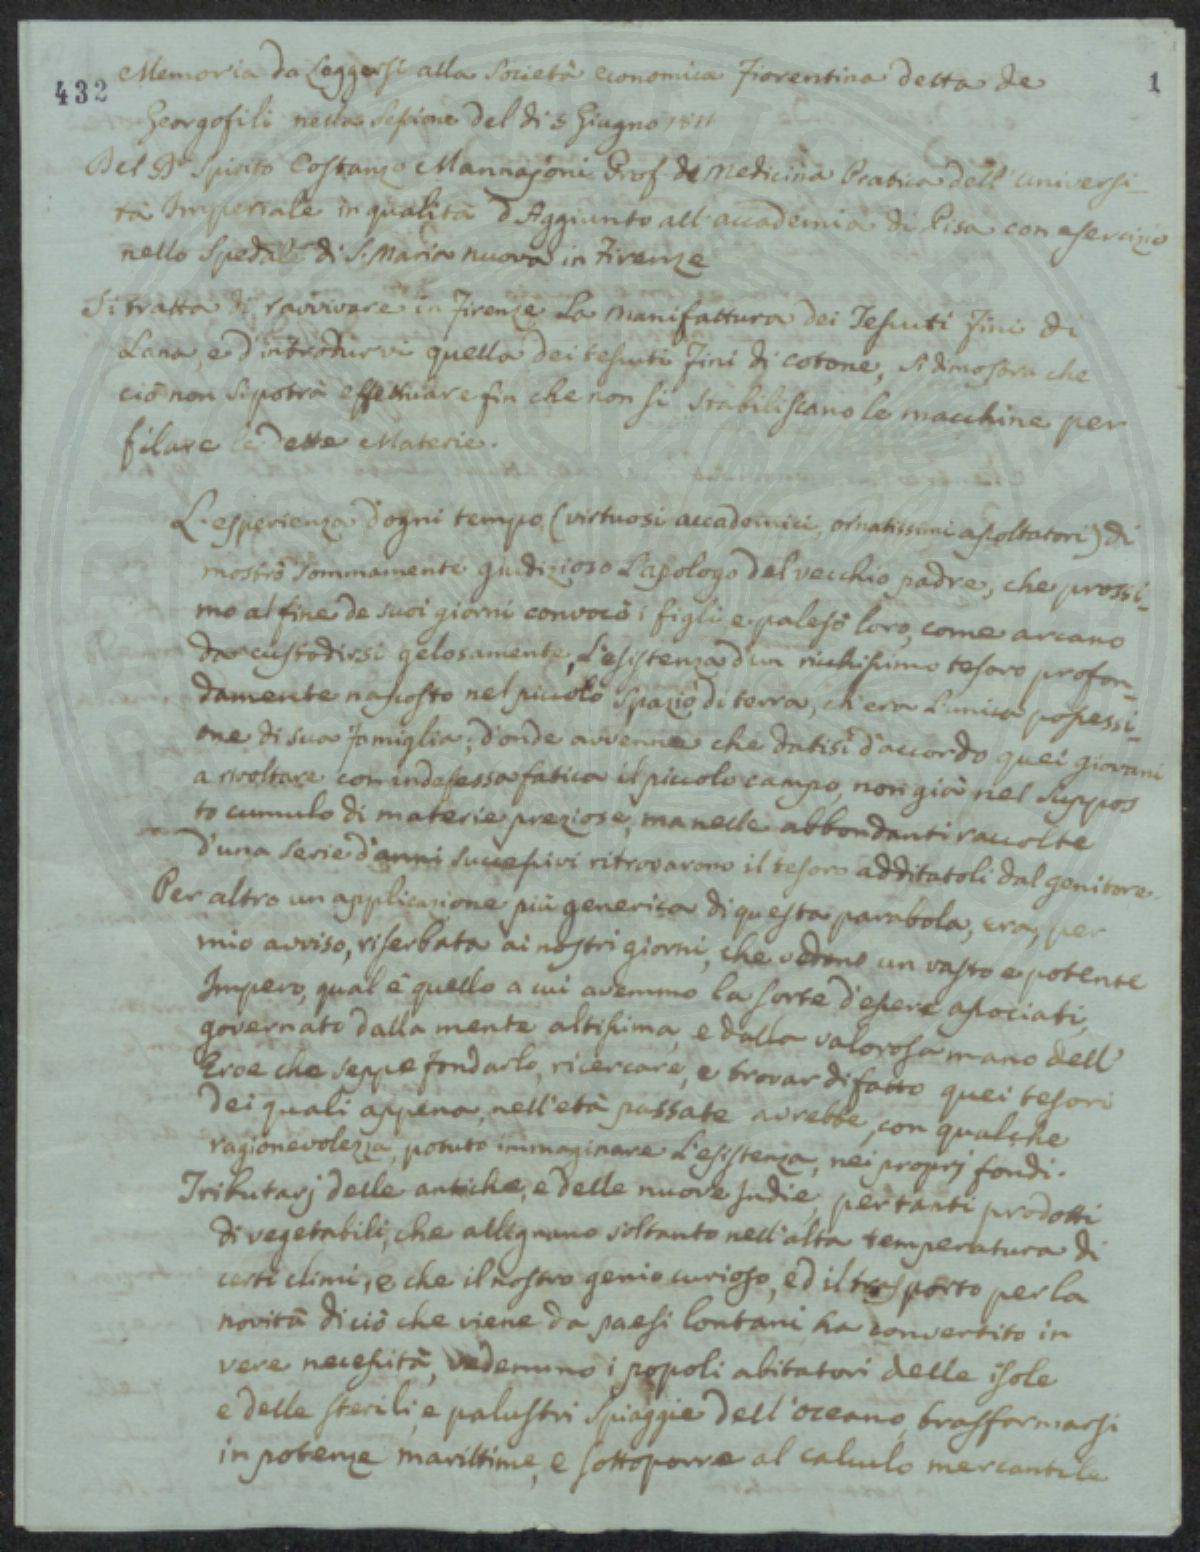 432
1
Memoria da Leggersi alla Società economica Fiorentina detta de
Georgofili nella Sessione del dì 5 Giugno 1811
Del Dr Spirito Costanzo Mannajoni Prof di Medicina Pratica dell'Universi-
tà Imperiale in qualità d'Aggiunto all'accademia di Pisa con esercizio
nello Spedale di S. Maria nuova in Firenze
Si tratta di ravvivare in Firenze la manifattura dei Tessuti fini di
Lana, e d'introdurvi quella dei tessuti fini di cotone, si dimostra che
ciò non si potrà effettuare fin che non si stabiliscano le macchine per
filare le dette Materie.
L'esperienza d'ogni tempo, (virtuosi accademici, ornatissimi ascoltatori) di
mostrò sommamente giudizioso l'apologo del vecchio padre, che prossi-
mo al fine de suoi giorni convocò i figli e palesò loro, come arcano
da custodirsi gelosamente, l'esistenza d'un ricchissimo tesoro profon-
damente nascosto nel piccolo spazio di terra, ch'era l'unica possessi-
one di sua famiglia; d'onde avvenne che datisi d'accordo quei giovani
a rivoltare con indefessa fatica il piccolo campo, non già nel suppos
to cumulo di materie preziose, ma nelle abbondanti raccolte
d'una serie d'anni successivi ritrovarono il tesoro additatoli dal genitore.
Per altro un applicazione più generica di questa parabola, era, per
mio avviso, riserbata ai nostri giorni, che vedono un vasto e potente
Impero, qual è quello a cui avemmo la sorte d'essere associati,
governato dalla mente altissima, e dalla valorosa mano dell'
Eroe che seppe fondarlo, ricercare, e trovar difatto quei tesori
dei quali appena, nell'età passate avrebbe, con qualche
ragionevolezza, potuto immaginare l'esistenza, nei proprj fondi.
Tributarj delle antiche, e delle nuove Indie, per tanti prodotti
di vegetabili, che allignano soltanto nell'alta temperatura di
certi climi, e che il nostro genio curioso, ed il trasporto per la
novità di ciò che viene da paesi lontani ha convertito in
vere necessità, vedemmo i popoli abitatori delle isole
e delle sterili, e palustri spiaggie dell'oceano, trasformarsi
in potenze marittime, e sottoporre al calculo mercantile